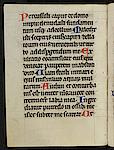 Percussisti caput de domo
impii denudasti fundamen
tum usque ad collum Maledix
isti sceptris eius capiti bella
torum eius venientibus ut tur
bo ad dispergendum me
Exultatio eorum sicut eius
qui devorat pauperem in abscon
dito Viam fecisti in mari
equis tuis in luto aquarum mul
tarum Audivi et contur
batus est venter meus a voce
contremuerunt labia mea In
grediatur putredo in ossibus me
is et subter me scateat